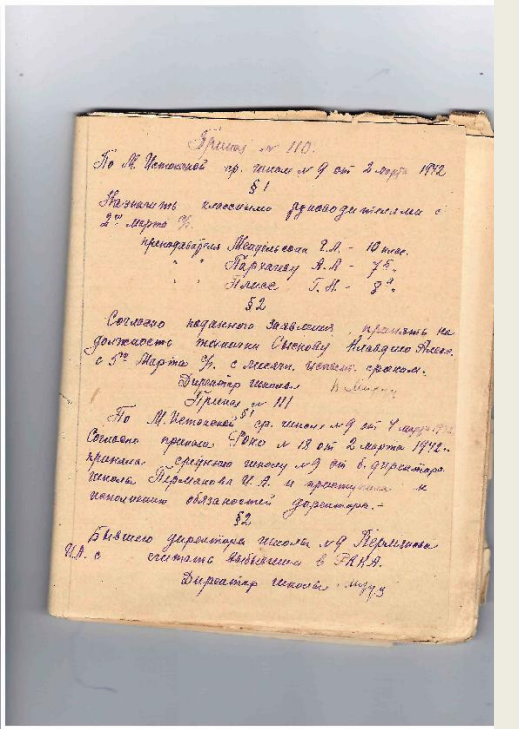 Приказ № 110.
По М. Истокской ср. школе № 9 от 2 марта 1942
§ 1
Назначить классными руководителями с
2го марта с/г.
преподавателя Мендельсон Г.Л. - 10 клас.
" " А.А - 7
" " Плисс Г. Н. - 8
§ 2
Согласно поданного заявления, принять на
должность техники Клавдию Алекс.
с 5го Марта с/г. с месячн. испыт. сроком.
Директор школы
Приказ № 111
По М. Истокской ср. школе № 9 от 4 марта 1942
§ 1
Согласно приказа Роно № 18 от 2 марта 1942г.
приняла среднюю школу № 9 от б. директора
школы Пермякова И. А. и приступила к
исполнению обязаностей директора. -
§ 2
Бывшего директора школы № 9 Пермякова
И.А. с считать выбывшим в РККА.
Директор школы